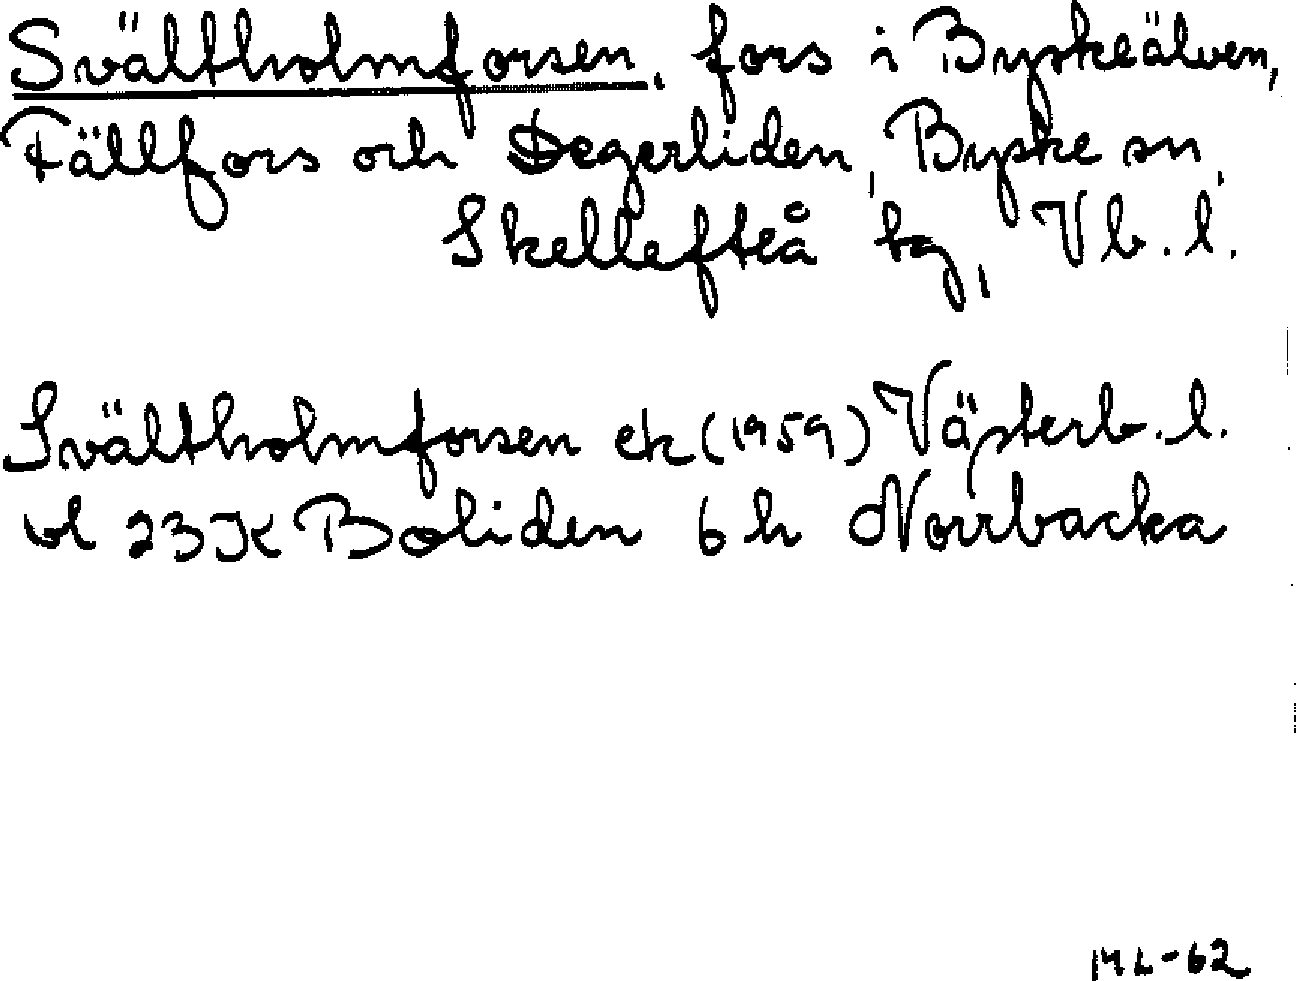 Svältholmforsen, fors i Byskeälven,
Fällfors och Degerliden, Byske sn,
Skellefteå tg, Vb.l.
Svältholmforsen ek (1959) Västerb.l.
bl 23K Boliden 6 h Norrbacka
ML-62